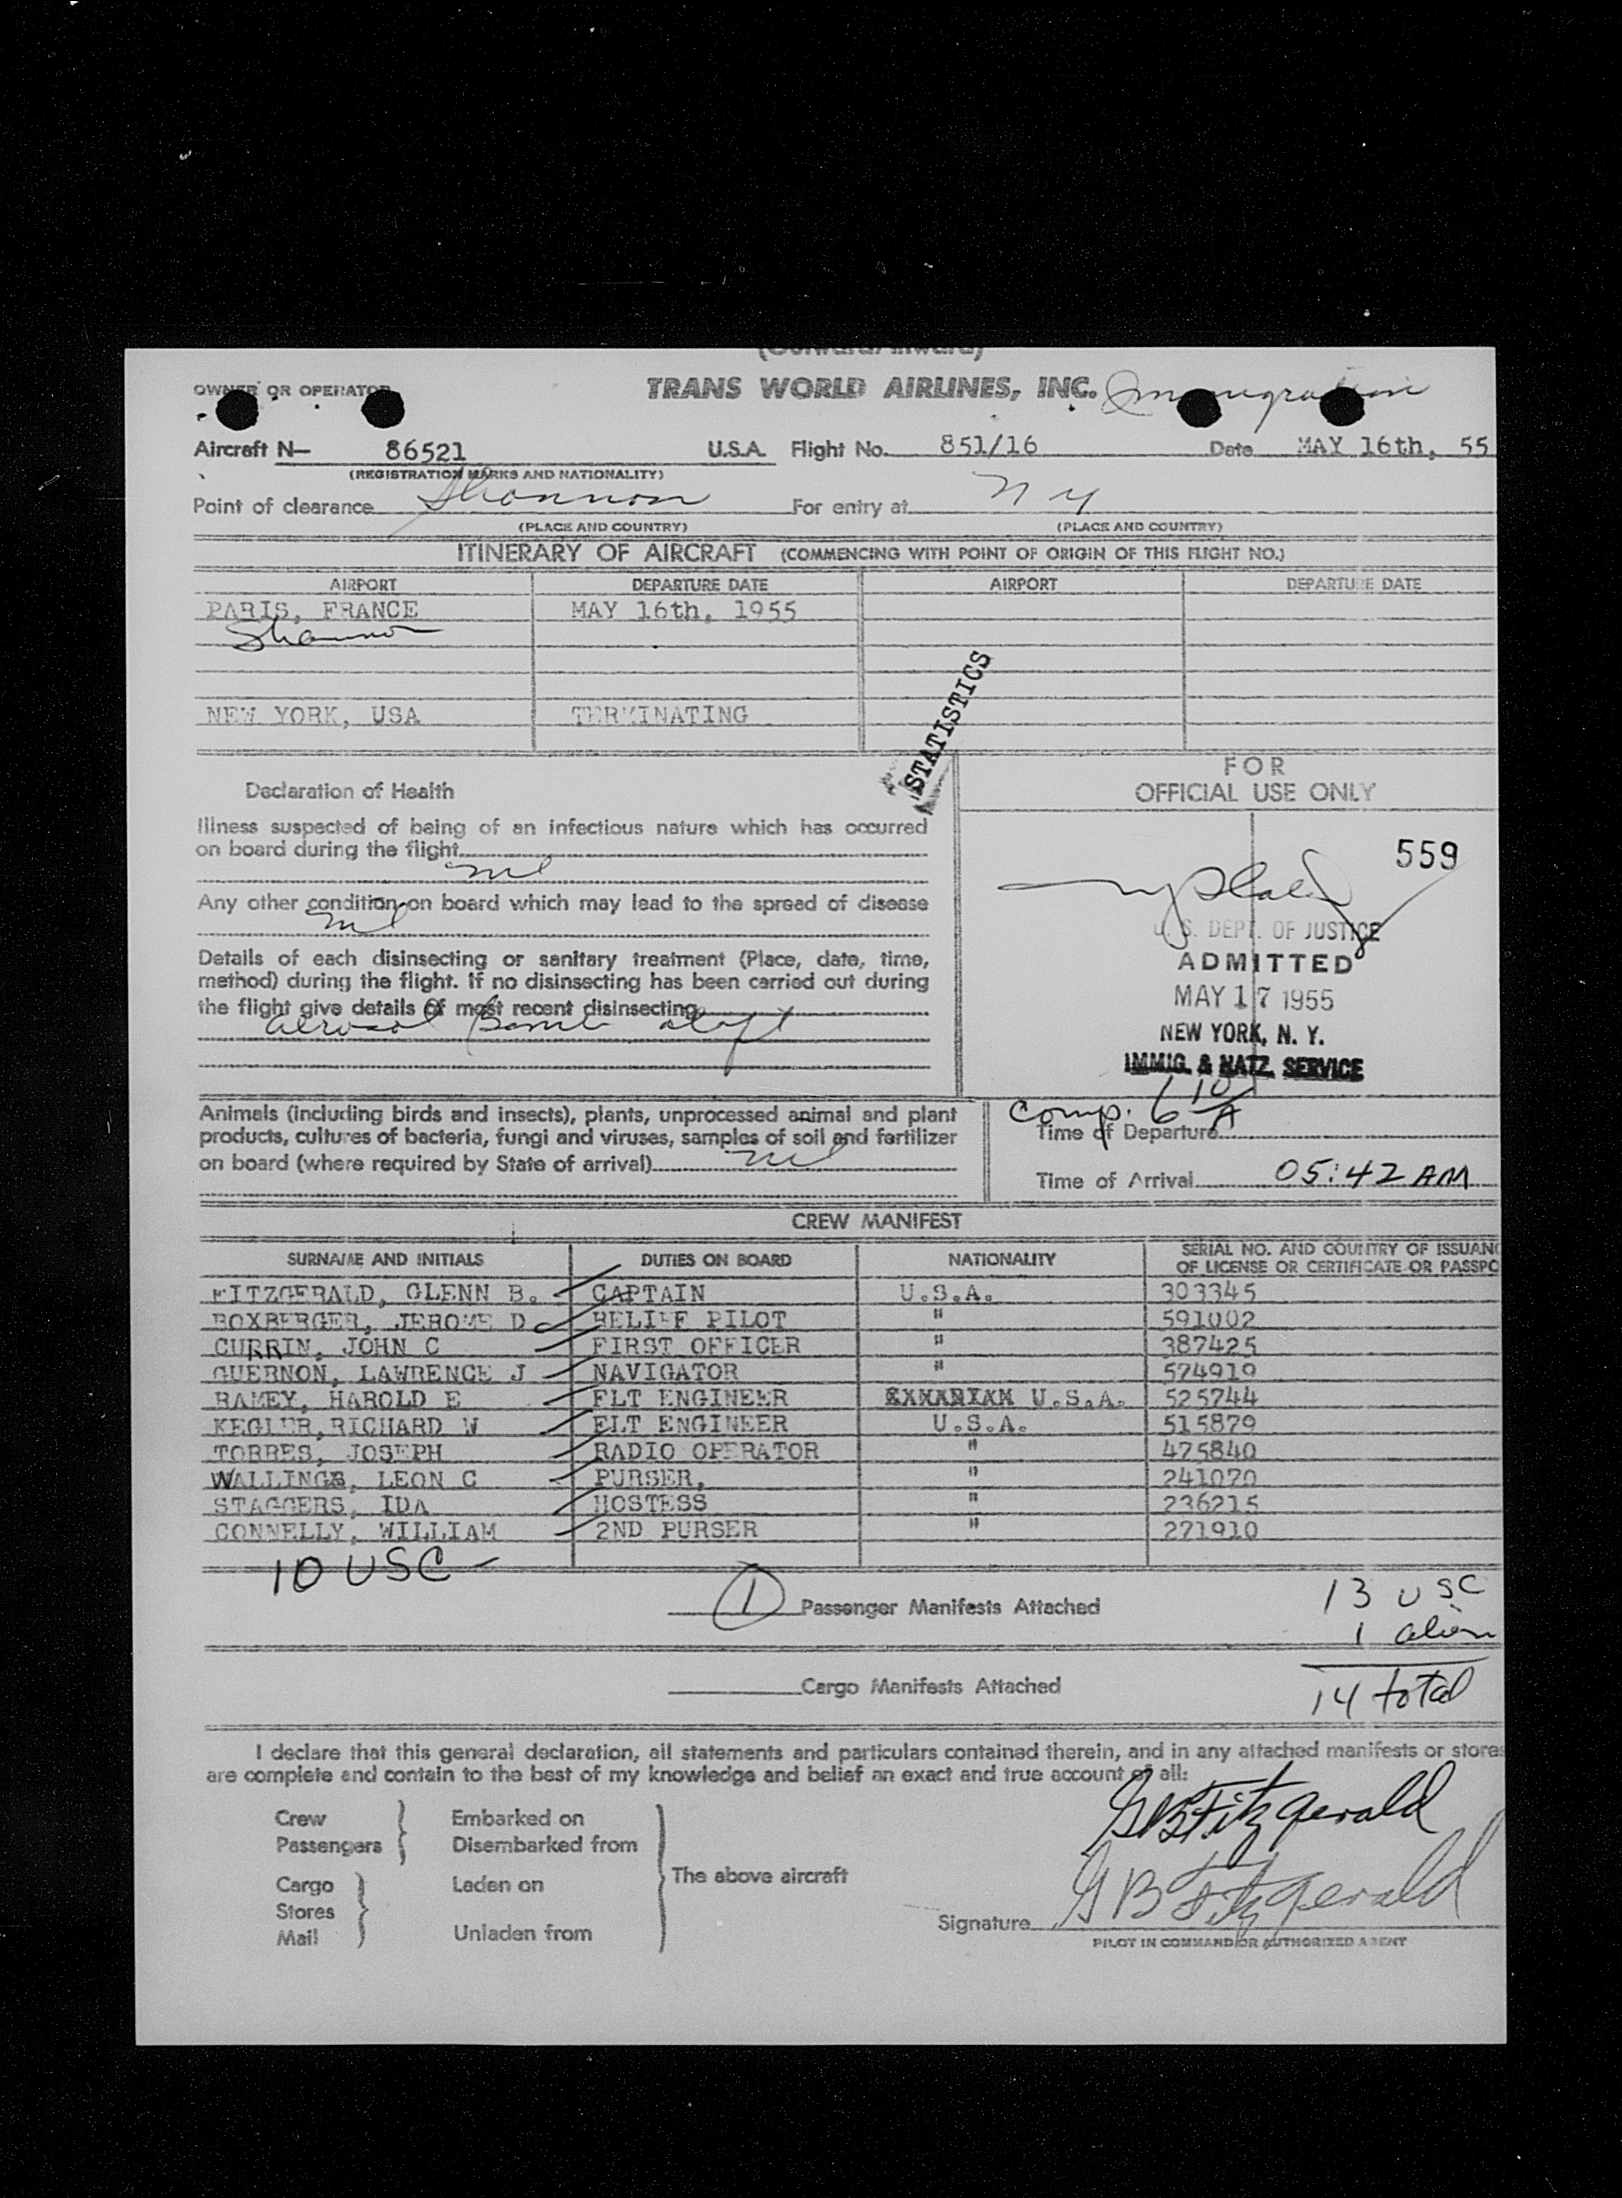 (Outward/Inward)
OWNER OR OPERATOR TRANS WORLD AIRLINES, INC. Immigration
Aircraft N— 86521 U.S.A. Flight No. 851/16 Date MAY 16th, 55
(REGISTRATION MARKS AND NATIONALITY)
Point of clearance Shannon For entry at N Y
(PLACE AND COUNTRY) (PLACE AND COUNTRY)
ITINERARY OF AIRCRAFT (COMMENCING WITH POINT OF ORIGIN OF THIS FLIGHT NO.)
AIRPORT DEPARTURE DATE AIRPORT DEPARTURE DATE
PARIS, FRANCE MAY 16th, 1955
Shannon
NEW YORK, USA TERMINATING
STATISTICS
FOR
OFFICIAL USE ONLY
Declaration of Health
Illness suspected of being of an infectious nature which has occurred
on board during the flight
nil
Any other condition on board which may lead to the spread of disease
nil
Details of each disinsecting or sanitary treatment (Place, date, time,
method) during the flight. If no disinsecting has been carried out during
the flight give details of most recent disinsecting
aerosol Bomb aloft
559
U.S. DEPT. OF JUSTICE
ADMITTED
MAY 17 1955
NEW YORK, N. Y.
IMMIG. & NATZ. SERVICE
Comp. 6 10/A
Animals (including birds and insects), plants, unprocessed animal and plant
products, cultures of bacteria, fungi and viruses, samples of soil and fertilizer
on board (where required by State of arrival) nil
Time of Departure
Time of Arrival 05:42 AM
CREW MANIFEST
SURNAME AND INITIALS DUTIES ON BOARD NATIONALITY SERIAL NO. AND COUNTRY OF ISSUANC
OF LICENSE OR CERTIFICATE OR PASSPO
FITZGERALD, GLENN B. CAPTAIN U.S.A. 303345
BOXBERGER, JEROME D RELIEF PILOT " 591002
CURRIN, JOHN C FIRST OFFICER " 387425
GUERNON, LAWRENCE J NAVIGATOR " 574919
RAMEY, HAROLD E FLT ENGINEER U.S.A. 525744
KEGLER, RICHARD W FLT ENGINEER U.S.A. 515879
TORRES, JOSEPH RADIO OPERATOR " 475840
WALLINGS, LEON C PURSER, " 241070
STAGGERS, IDA HOSTESS " 236215
CONNELLY, WILLIAM 2ND PURSER " 271910
10 USC –
1 Passenger Manifests Attached 13 USC
1 alien
Cargo Manifests Attached 14 total
I declare that this general declaration, all statements and particulars contained therein, and in any attached manifests or stores
are complete and contain to the best of my knowledge and belief an exact and true account of all:
Crew Embarked on
Passengers Disembarked from
The above aircraft
Cargo Laden on
Stores
Mail Unladen from
GB Fitzgerald
Signature GB Fitzgerald
PILOT IN COMMAND OR AUTHORIZED AGENT